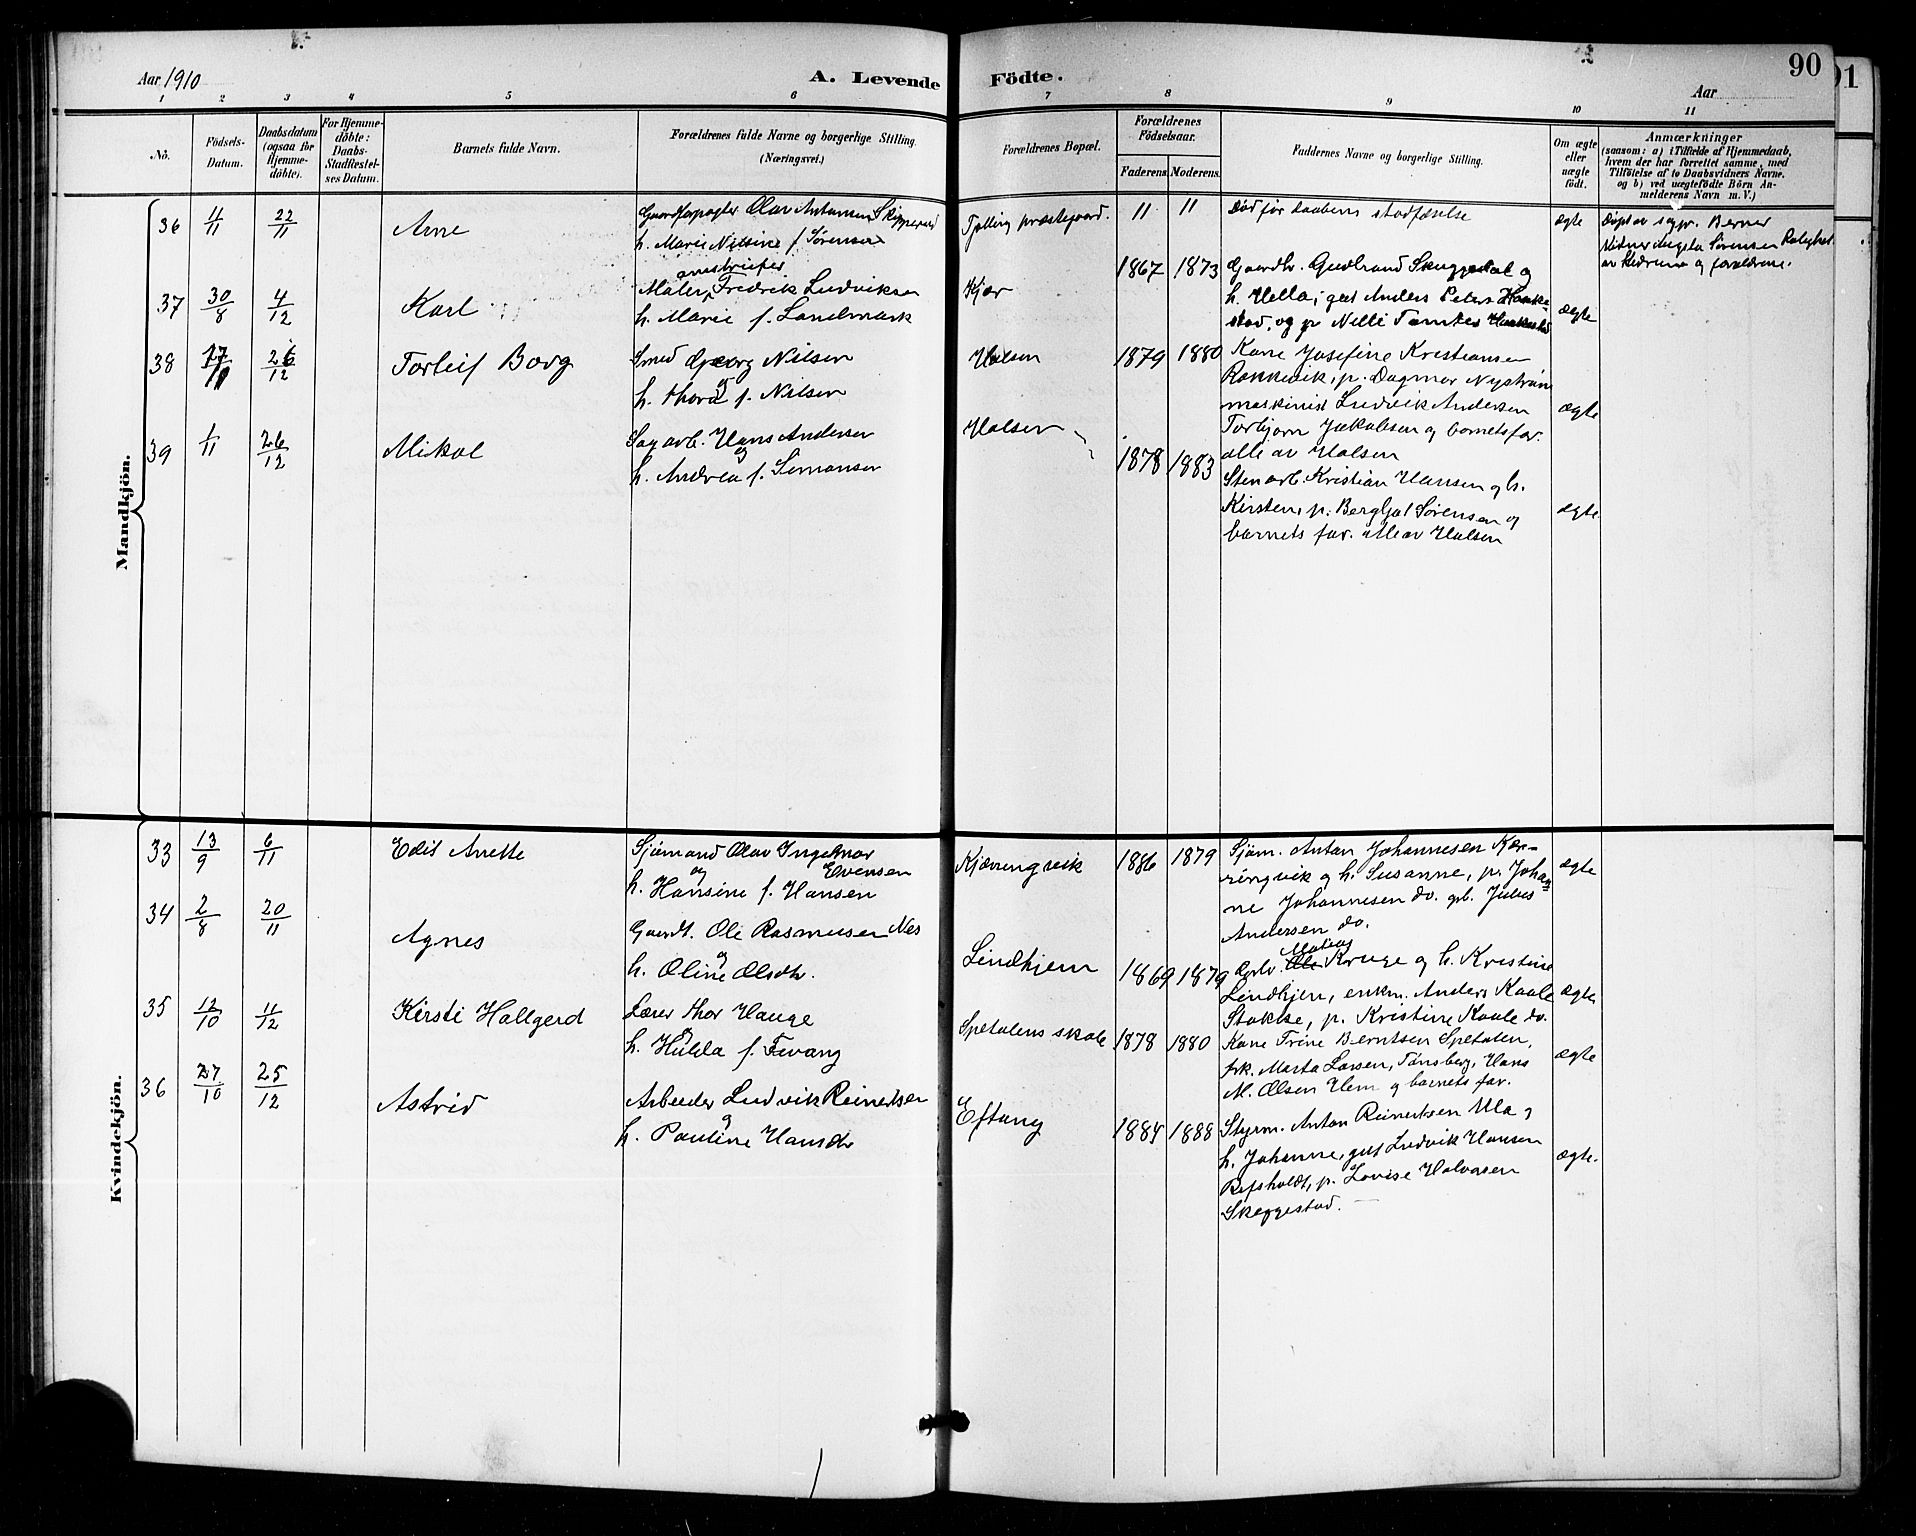 90
91
Aar 1910
A. Levende Födte.
Aar
1 2 3 4 5 6 7 8 9 10 11
No.
Födsels-
Datum.
Daabsdatum
(ogsaa for
Hjemme-
döbte).
For Hjemme-
döbte:
Daabs-
Stadfæstel-
ses Datum.
Barnets fulde Navn.
Forældrenes fulde Navne og borgerlige Stilling.
(Næringsvei.)
Forældrenes Bopæl.
Forældrenes
Födselsaar.
Faderens. Moderens.
Faddernes Navne og borgerlige Stilling.
Om ægte
eller
uægte
födt.
Anmærkninger
(saasom: a) i Tilfælde af Hjemmedaab,
hvem der har forrettet samme, med
Tilföielse af to Daabsvidners Navne.
og b) ved uægtefödte Börn An-
melderens Navn m. V.)
Mandkjön.
36 11/11 22/11 Arne
Gaardforpagter Olav Antonsen
h. Marie Nilsine f. Sørensen
Tjølling præstegaard.
11 11
Død før daabens stadfæstelse
ægte
Døpt av sogpr. Berner
37 30/8 4/12 Karl
Maler, Fredrik Ludviksen
h. Marie f. Landmark
Kjær
1867 1873
Gaardbr. Gudbrand Skuggedal og
h. Hella, gut Anders Peters
stad, og p Nelli
ægte
38 26/12 Torleif Borg
Smed Georg Nilsen
og
h. Thora f. Nilsen
Halsen
1879 1880
Kone Josefine Kristiansen
p. Dagmar Nystrøm
maskinist Ludvik Andersen
Torbjørn Jakobsen og barnets far.
alle av Halsen
ægte
39 1/11 26/12 Mikal
Sagarb. Hans Andersen
og
h. Andrea f. Simonsen
Halsen
1878 1883
Stenarb. Kristian Hansen og h.
Kirsten, p. Bergljot Sørensen og
barnets far. alle av Halsen
ægte
Kvindekjön.
33 13/9 6/11 Edit Anette
Sjömand Olav Ingelmar
og Evensen
h. Hansine f. Hansen
Kjærringvik
1886 1879
Sjöm. Anton Johannesen Kær-
ringvik og h. Susanne, p. Johan
ne Johannesen do. gb. Julius
Andersen do.
ægte
34 2/8 20/11 Agnes
Gaardt. Ole Rasmusen Nes
og
h. Oline Olsdtr.
Lindhjem
1869 1879
Matias
Kruge og h. Kristine
Lindhjem, enkm. Anders Kaale
Stokke, p. Kristine Kaale do.
ægte
35 12/10 11/12 Kirsti Hallgerd
Lærer Thor Hauge
og
h. Hulda f. Fevang
Spetalens skole
1878 1880
Kone Trine Berntsen Spetalen,
frk. Marta Larsen, Tønsberg, Hans
M. Olsen Hem og barnets far.
ægte
36 27/10 25/12 Astrid
Arbeider Ludvik Reinertsen
og
h. Pauline Hansdtr
Eftang
1884 1888
Styrm. Anton Reinertsen Ula og
h. Johanne, gut Ludvik Hansen
Refsholdt, p. Lovise Halvorsen
Skeggestad.
ægte.